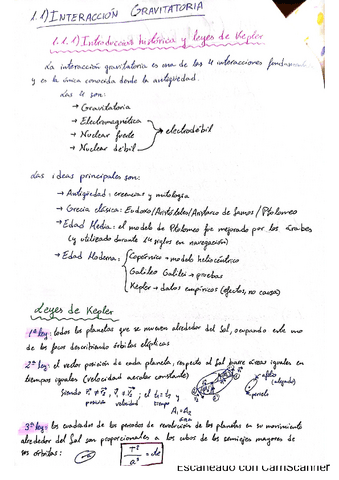 1.1) INTERACCIÓN GRAVITATORIA
1.1.1) Introducción histórica y leyes de Kepler
La interacción gravitatoria es una de las 4 interacciones fundamentales
y es la única conocida desde la antigüedad.
Las 4 son:
→ Gravitatoria
→ Electromagnética
→ Nuclear fuerte
→ Nuclear débil
electrodébil
Las ideas principales son:
→ Antigüedad: creencias y mitología
→ Grecia clásica: Eudoxo/Aristóteles/Aristarco de Samos/Ptolomeo
→ Edad Media: el modelo de Ptolomeo fue mejorado por los árabes
(y utilizado durante 14 siglos en navegación)
→ Edad Moderna:
Copérnico → modelo heliocéntrico
Galileo Galilei → pruebas
Kepler → datos empíricos (efectos, no causas)
Leyes de Kepler
1ª ley: todos los planetas que se mueven alrededor del Sol, ocupando este uno
de los focos describiendo órbitas elípticas
2ª ley: el vector posición de cada planeta, respecto al Sol barre áreas iguales en
tiempos iguales (velocidad areolar constante)
afelio
(alejado)
perihelio
siendo r₁ ≠ r₂, v₁ ≠ v₂; el t₁ = t₂ y
posición velocidad tiempo
A₁ = A₂
área
3ª ley: los cuadrados de los periodos de revolución de los planetas en su movimiento
alrededor del Sol son proporcionales a los cubos de los semiejes mayores de
sus órbitas:
T²/a³ = cte
Escaneado con CamScanner